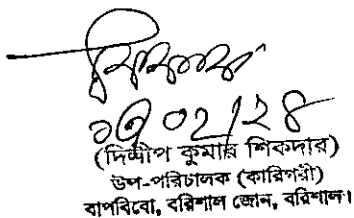 (দিলীপ কুমার শিকদার)
উপ-পরিচালক (কারিগরী)
বাপবিবো, বরিশাল জোন, বরিশাল।